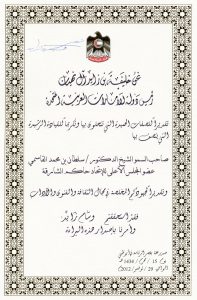 نحن خليفة بن زايد آل نهيان
رئيس دولة الإمارات العربية المتحدة
تقديراً للصفات الحميدة التي يتحلى بها وتكريماً للقيادة الرشيدة
التي يتصف بها
صاحب السمو الشيخ الدكتور / سلطان بن محمد القاسمي
عضو المجلس الأعلى للاتحاد حاكم الشارقة
وتقديراً لجهوده المخلصة في مجال الثقافة والفنون والآداب
فقد استحق وسام زايد
وأمرنا بإصدار هذه البراءة